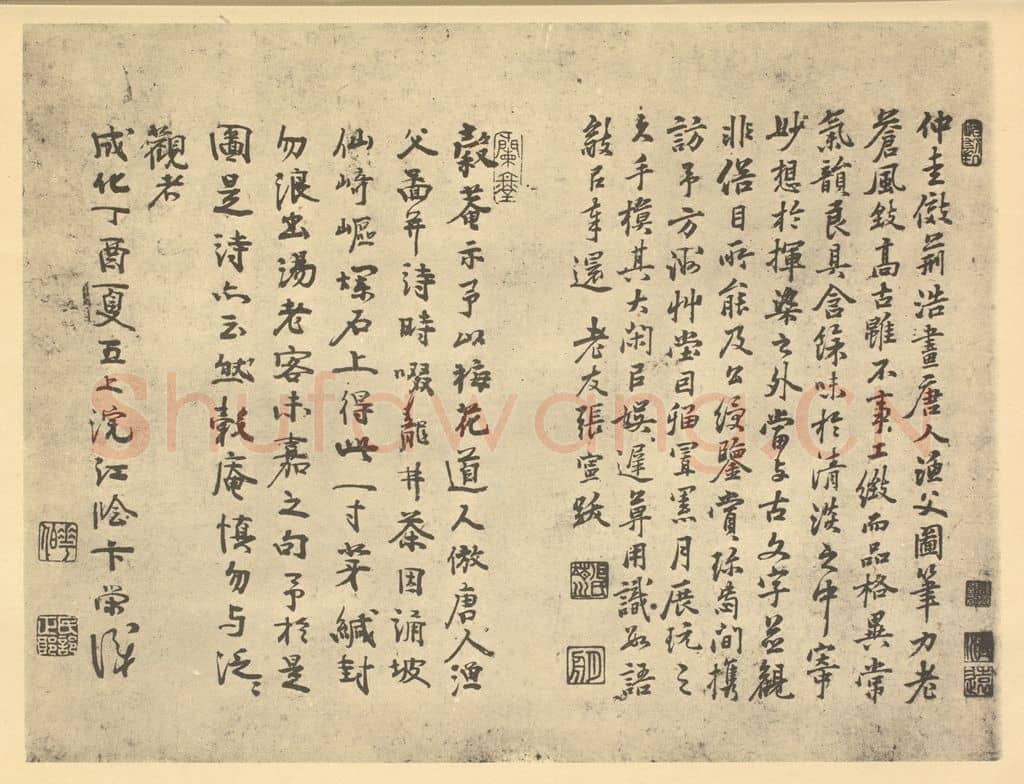 仲圭倣荊浩畫唐人漁父圖筆力老
蒼風致高古雖不事工緻而品格異常
氣韻良具含餘味於清淡之中寄
妙想於揮染之外當与古文字並觀
非俗目所能及公綬鑒賞珎袠間携
訪予方洲艸堂目累月展玩之
久手摸其大闲以娯遲莫用識数語
敬以奉還 老友張寧跋
穀菴示予以梅花道人倣唐人漁
父啚并詩時啜龍井茶因誦坡
仙崎嶇爍石上得此一寸芽緘封
勿浪出湯老客未嘉之句予於是
圖是詩亦云然穀庵慎勿与泛〻
觀者
成化丁酉夏五上浣江陰卞榮識
Shufawang.cn